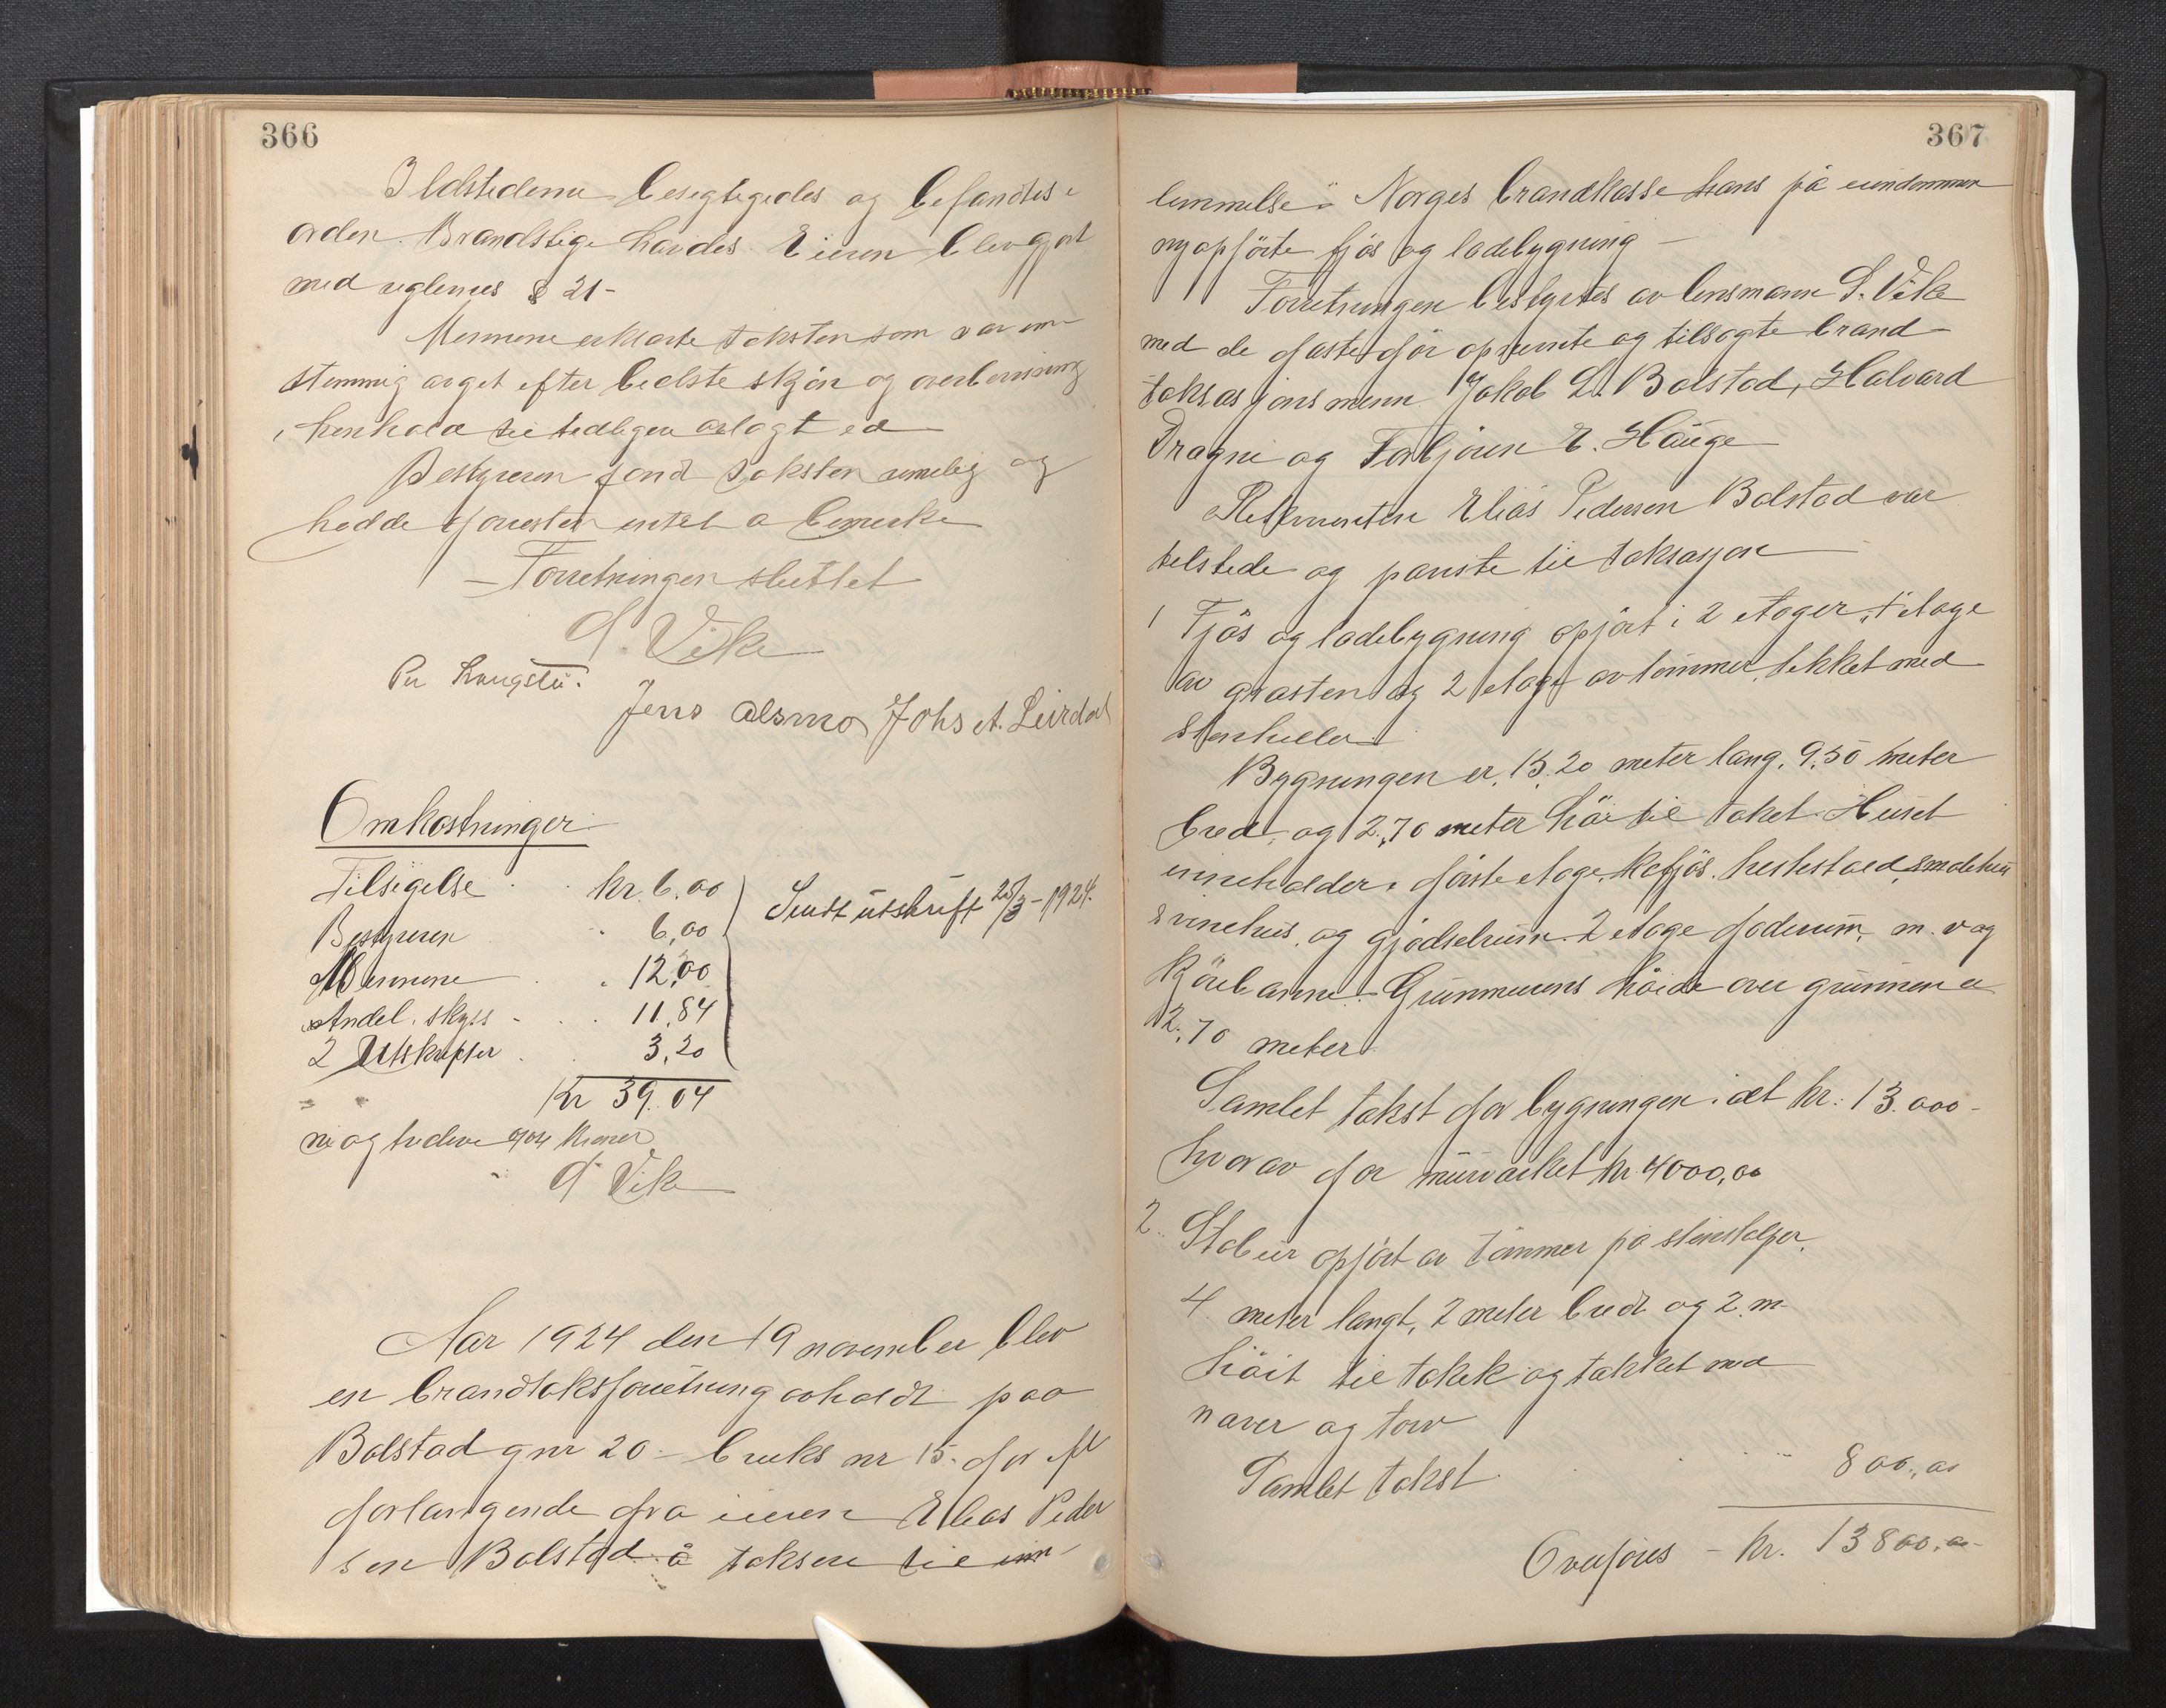 366
Ildstederne besegtigedes og befandtes i
orden. Brandstige havdes. Eieren blev gjort
med reglernes § 21-
Mennene erklærte taksten som var enn-
stemmig avget efter bedste skjøn og overbevisning
i henhold til tidligere avlagt ed
Bestyreren fand taksten rimelig og
hadde forresten intet a bemerke
Forretningen sluttet
S. Vike
Jens Alsmo Johs A. Leirdal
Omkostninger
Tilsigelse . . kr. 6.00
Bestyreren . . 6,00
Mennene . . 12,00
Andel i skyss - . . 11,84
2 Utskrifter . . 3,20
Sendt utskrift 25/3-1924.
Kr 39.04
ni og tredeve 04 Kroner
S Vike
Aar 1924 den 19 november blev
en brandtaksforretning avholdt paa
Bolstad gnr 20 - bruks nr 15. for eft
forlangende fra eieren Elias Peder
sen Bolstad å taksere til inn-
367
lemmelse i Norges brandkasse hans på eiendommen
nyopførte fjøs og ladebygning -
Forretningen bestyrtes av lensmann S. Vike
med de faste før opnevnte og tilsagte brand-
taksasjonsmenn Jakob L. Bolstad, Halvard
Dragni og Torbjørn E. Hauge
Rekvirenten Elias Pedersen Bolstad var
tilstede og paviste til taksasjon
1 Fjøs og ladebygning opført i 2 etager, 1 etage
av gråsten og 2 etage av tømmer, tekket med
stenheller.
Bygningen er 15.20 meter lang, 9.50 meter
bred, og 2,70 meter høi til taket. Huset
inneholder i første etage, kufjøs, hestestald, smalehus
svinehus, og gjødselrum. 2 etage foderum, m. v og
kjørebanne. Grunnmurens høide over grunnen er
2.70 meter
Samlet takst for bygningen i alt kr. 13.000-
hvorav for murverket kr 4000,00
2. Stabur opført av tømmer på stenstolper,
4 meter langt, 2 meter bredt og 2 m-
høit til taket og tækket med
næver og torv
Samlet takst . . . 800,00
Overføres - kr. 13800.00-